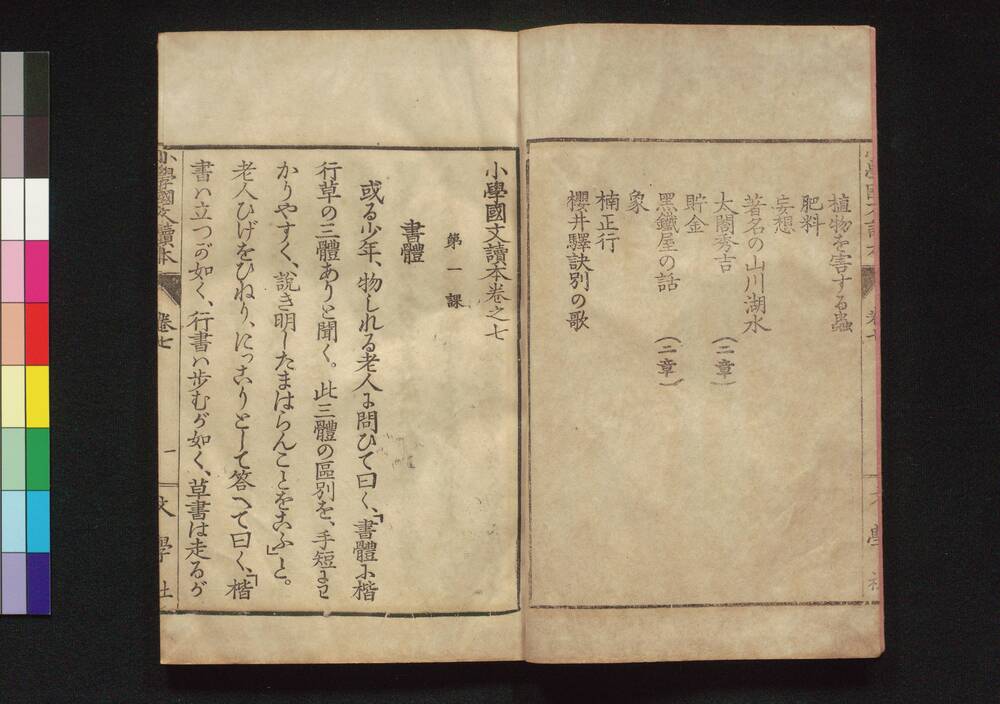 植物を害する蟲
肥料
妄想
著名の山川湖水
太閤秀吉 (二章)
貯金
黑鐵屋の話 (二章)
象
楠正行
櫻井驛訣別の歌
小學國文讀本卷之七
第一課
書體
或る少年、物しれる老人に問ひて曰く、「書體に楷
行草の三體ありと聞く。此三體の區別を、手短にわ
かりやすく、説き明したまはらんことをこふ」と。
老人ひげをひねり、にっこりとして答へて曰く、「楷
書ハ立つが如く、行書ハ歩むが如く、草書は走るが
小學國文讀本 卷七 一 文學社